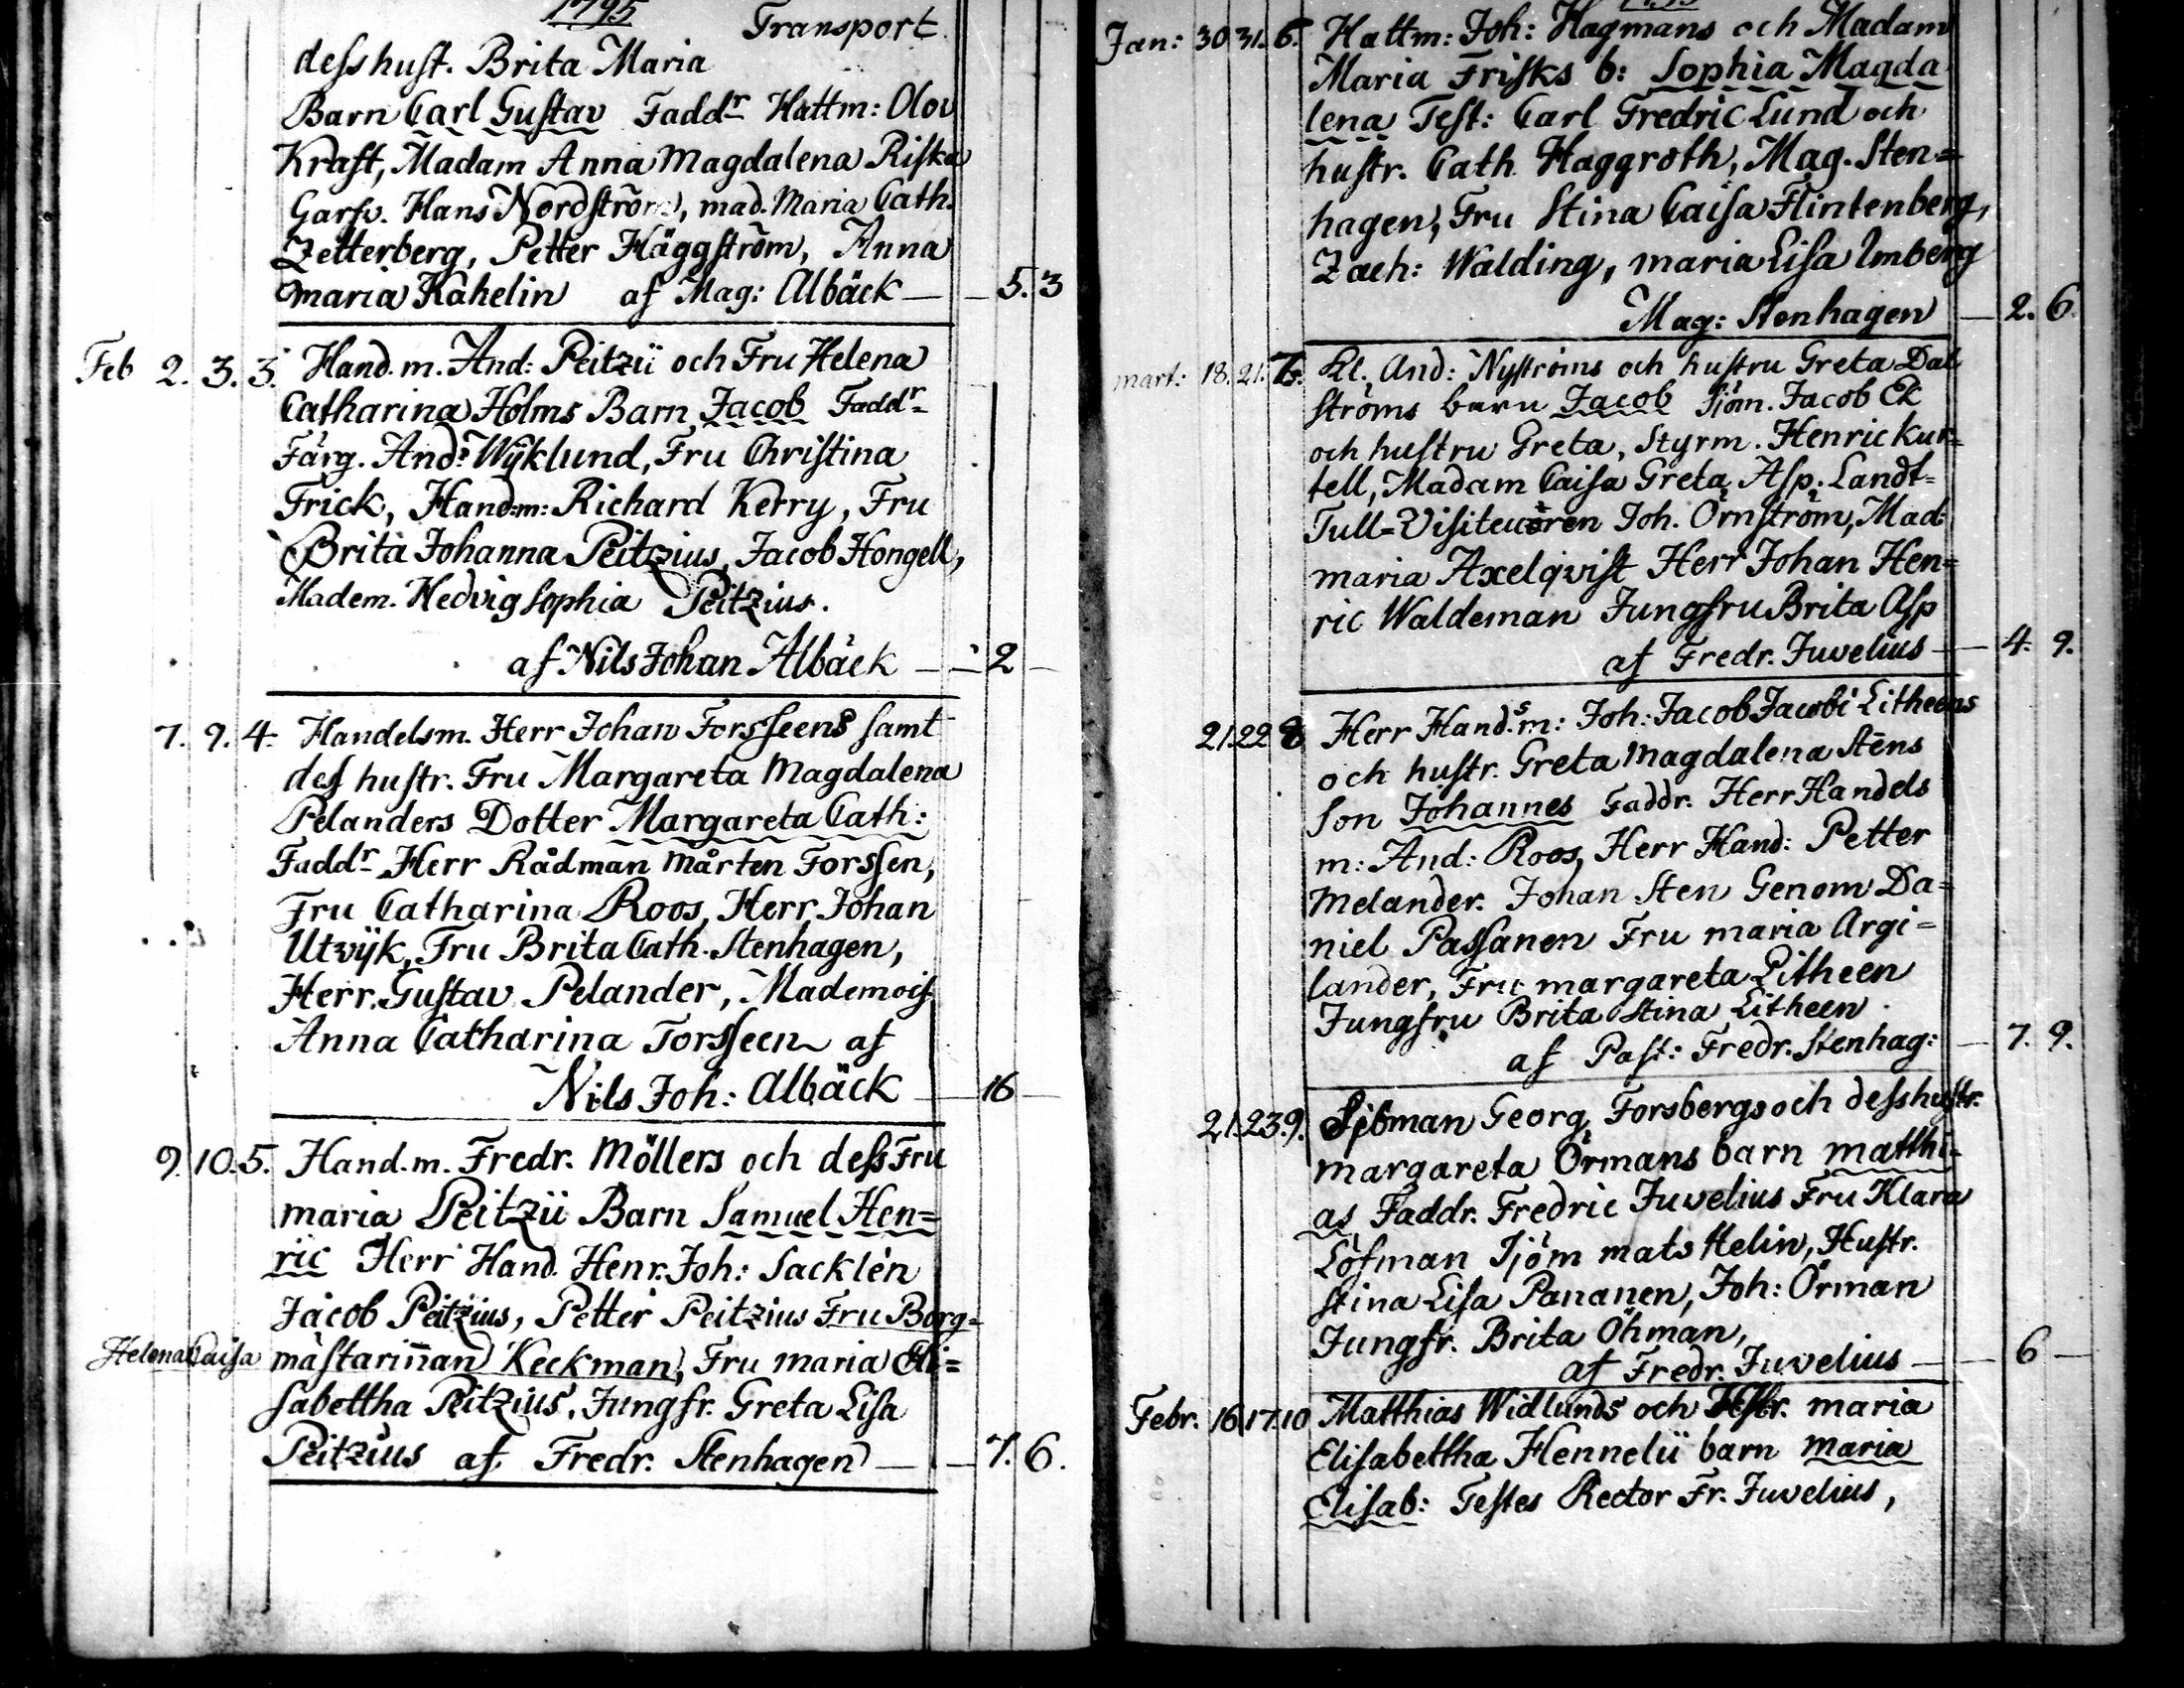 1795
Transport
dess hust. Brita Maria
Barn Carl Gustav Faddr Hattm: Olov
Kraft, Madam Anna Magdalena Riska
Garfv. Hans Nordström, mad. Maria Cath.
Zetterberg, Petter Häggström, Anna
maria Kahelin af Mag: Albäck — 5. 3
Feb 2. 3. 3. Hand. m. And: Peitzii och Fru Helena
Catharina Holms Barn Jacob Faddr
Färg. Andr Wÿklund, Fru Christina
Frick, Hand:m: Richard Kerry, Fru
Brita Johanna Peitzius, Jacob Hongell,
Madem. Hedvig Sophia Peitzius.
af Nils Johan Albäck — 2 —
7. 9. 4. Handelsm. Herr Johan Forsseens samt
dess hustr. Fru Margareta Magdalena
Pelanders Dotter Margareta Cath:
Faddr Herr Rådman Mårten Forssen,
Fru Catharina Roos, Herr Johan
Utvÿk, Fru Brita Cath. Stenhagen,
Herr. Gustav Pelander, Mademois
Anna Catharina Forsseen af
Nils Joh: Albäck — 16 —
9. 10. 5. Hand. m. Fredr. Möllers och dess Fru
maria Peitzii Barn Samuel Hen=
ric Herr Hand. Henr. Joh: Sacklén
Jacob Peitzius, Petter Peitzius Fru Borg=
Helena Caisa mästarinnan Keckman, Fru maria Eli=
sabettha Peitzius, Jungfr. Greta Lisa
Peitzius af Fredr. Stenhagen — 7. 6.
Jan: 30 31. 6. Hattm: Joh: Hagmans och Madam
Maria Frisks b: Sophia Magda
lena Test: Carl Fredric Lund och
hustr. Cath Haggroth, Mag. Sten=
hagen, Fru Stina Caisa Flintenberg,
Zach: Walding, maria Lisa Imberg
Mag: Stenhagen — 2. 6.
mart: 18. 21. 7. And: Nyströms och hustru Greta Dal
ströms barn Jacob Sjöm. Jacob Ek
och hustru Greta, Styrm. Henric Kur=
tell, Madam Caisa Greta Asp. Landt=
Tull=Visiteuren Joh. Örnström, Mad:
maria Axelqvist Herr Johan Hen=
ric Waldeman Jungfru Brita Asp
af Fredr. Juvelius — 4. 9.
21. 22 8 Herr Hand.s m: Joh: Jacob Jacobi Litheens
och hustr. Greta Magdalena Stens
son Johannes Faddr. Herr Handels
m: And: Roos, Herr Hand: Petter
Melander. Johan Sten Genom Da=
niel Passanen Fru maria Argi=
lander, Fru margareta Litheen
Jungfru Brita Stina Litheen.
af Past: Fredr. Stenhag: — 7. 9.
21. 23. 9. Sjöman Georg Forsbergs och dess hustr.
margareta Örmans barn matthi=
as Faddr. Fredric Juvelius Fru Klara
Löfman Sjöm mats Helin, Hustr.
Stina Lisa Pananen, Joh: Örman
Jungfr. Brita Öhman,
af Fredr. Juvelius — 6 —
Febr. 16 17 10 Matthias Widlunds och Hstr. maria
Elisabettha Hennelii barn maria
Elisab: Testes Rector Fr. Juvelius,